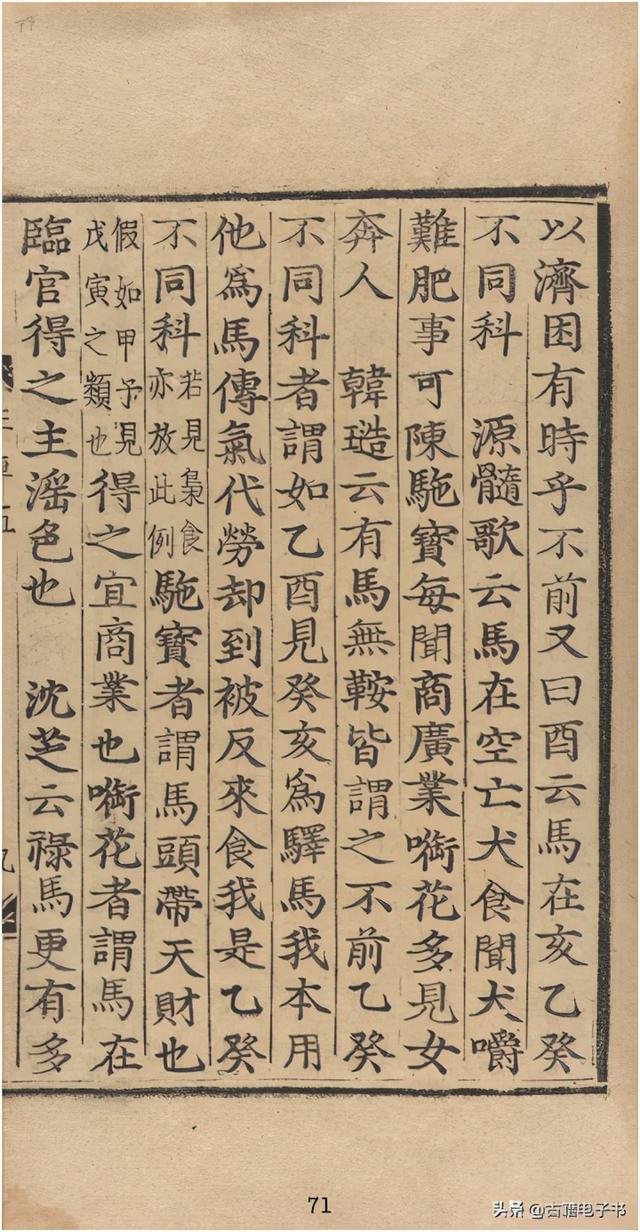 以濟困有時乎不前又曰酉云馬在亥乙癸
不同科　源髓歌云馬在空亡犬食聞犬嚼
難肥事可陳駞寶每聞商廣業啣花多見女
奔人　韓瑦云有馬無鞍皆謂之不前乙癸
不同科者謂如乙酉見癸亥為驛馬我本用
他為馬傳氣代勞却到被反來食我是乙癸
不同科若見梟食亦放此例駞寶者謂馬頭帶天財也
假如甲子見戊寅之類也得之宜商業也啣花者謂馬在
臨官得之主滛色也　沈芝云祿馬更有多
71
头条 @古籍电子书